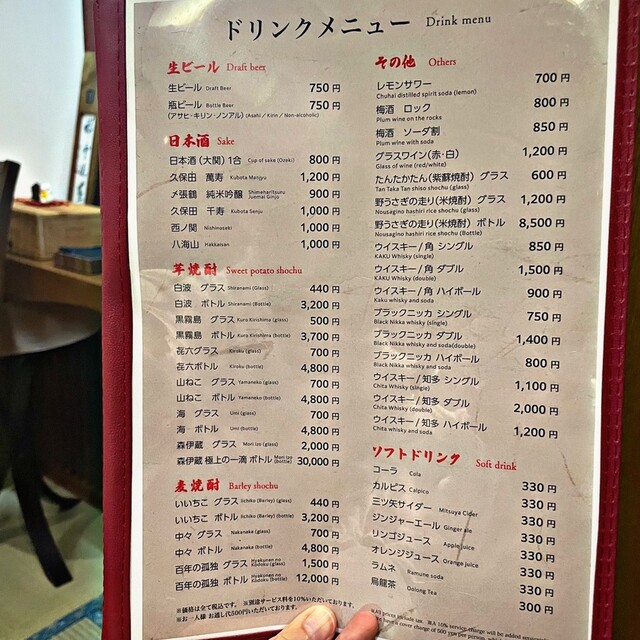 ドリンクメニュー Drink menu
生ビール Draft beer
生ビール Draft Beer 750円
瓶ビール Bottle Beer 750円
(アサヒ・キリン・ノンアル) (Asahi / Kirin / Non-alcoholic)
日本酒 Sake
日本酒(大関)1合 Cup of sake (Ozeki) 800円
久保田 萬寿 Kubota Manjyu 1,200円
〆張鶴 純米吟醸 Shimeharitsuru Junmai Ginjo 900円
久保田 千寿 Kubota Senju 1,000円
西ノ関 Nishinoseki 1,000円
八海山 Hakkaisan 1,000円
芋焼酎 Sweet potato shochu
白波 グラス Shiranami (Glass) 440円
白波 ボトル Shiranami (Bottle) 3,200円
黒霧島 グラス Kuro Kirishima (glass) 500円
黒霧島 ボトル Kuro Kirishima (bottle) 3,700円
㐂六グラス Kiroku (glass) 700円
㐂六ボトル Kiroku (bottle) 4,800円
山ねこ グラス Yamaneko (glass) 700円
山ねこ ボトル Yamaneko (bottle) 4,800円
海 グラス Umi (glass) 700円
海 ボトル Umi (bottle) 4,800円
森伊蔵 グラス Mori izo (glass) 2,000円
森伊蔵 極上の一滴 ボトル Mori izo (bottle) 30,000円
麦焼酎 Barley shochu
いいちこ グラス Iichiko (Barley) (glass) 440円
いいちこ ボトル Iichiko (Barley) (bottle) 3,200円
中々 グラス Nakanaka (glass) 700円
中々 ボトル Nakanaka (bottle) 4,800円
百年の孤独 グラス Hyakunen no Kodoku (glass) 1,500円
百年の孤独 ボトル Hyakunen no Kodoku (bottle) 12,000円
※価格は全て税込です。 ※別途サービス料を10%いただいております。
※お一人様 お通し代500円いただいております。
その他 Others
レモンサワー 700円
Chuhai distilled spirit soda (lemon)
梅酒 ロック 800円
Plum wine on the rocks
梅酒 ソーダ割 850円
Plum wine with soda
グラスワイン(赤・白) 1,200円
Glass of wine (red/white)
たんたかたん(紫蘇焼酎) グラス 600円
Tan Taka Tan shiso shochu (glass)
野うさぎの走り(米焼酎) グラス 1,200円
Nousagino hashiri rice shochu (glass)
野うさぎの走り(米焼酎) ボトル 8,500円
Nousagino hashiri rice shochu (Bottle)
ウイスキー/角 シングル 850円
KAKU Whisky (single)
ウイスキー/角 ダブル 1,500円
KAKU Whisky (double)
ウイスキー/角 ハイボール 900円
Kaku whisky and soda
ブラックニッカ シングル 750円
Black Nikka whisky (single)
ブラックニッカ ダブル 1,400円
Black Nikka whisky and soda(double)
ブラックニッカ ハイボール 800円
Black Nikka whisky and soda
ウイスキー/知多 シングル 1,100円
Chita Whisky (single)
ウイスキー/知多 ダブル 2,000円
Chita Whisky (double)
ウイスキー/知多 ハイボール 1,200円
Chita whisky and soda
ソフトドリンク Soft drink
コーラ Cola 330円
カルピス Calpico 330円
三ツ矢サイダー Mitsuya Cider 330円
ジンジャーエール Ginger ale 330円
リンゴジュース Apple juice 330円
オレンジジュース Orange juice 330円
ラムネ Ramune soda 330円
烏龍茶 Oolong Tea 300円
※All prices include tax. ※A 10% service charge will be added
have a cover charge of 500 yen per person